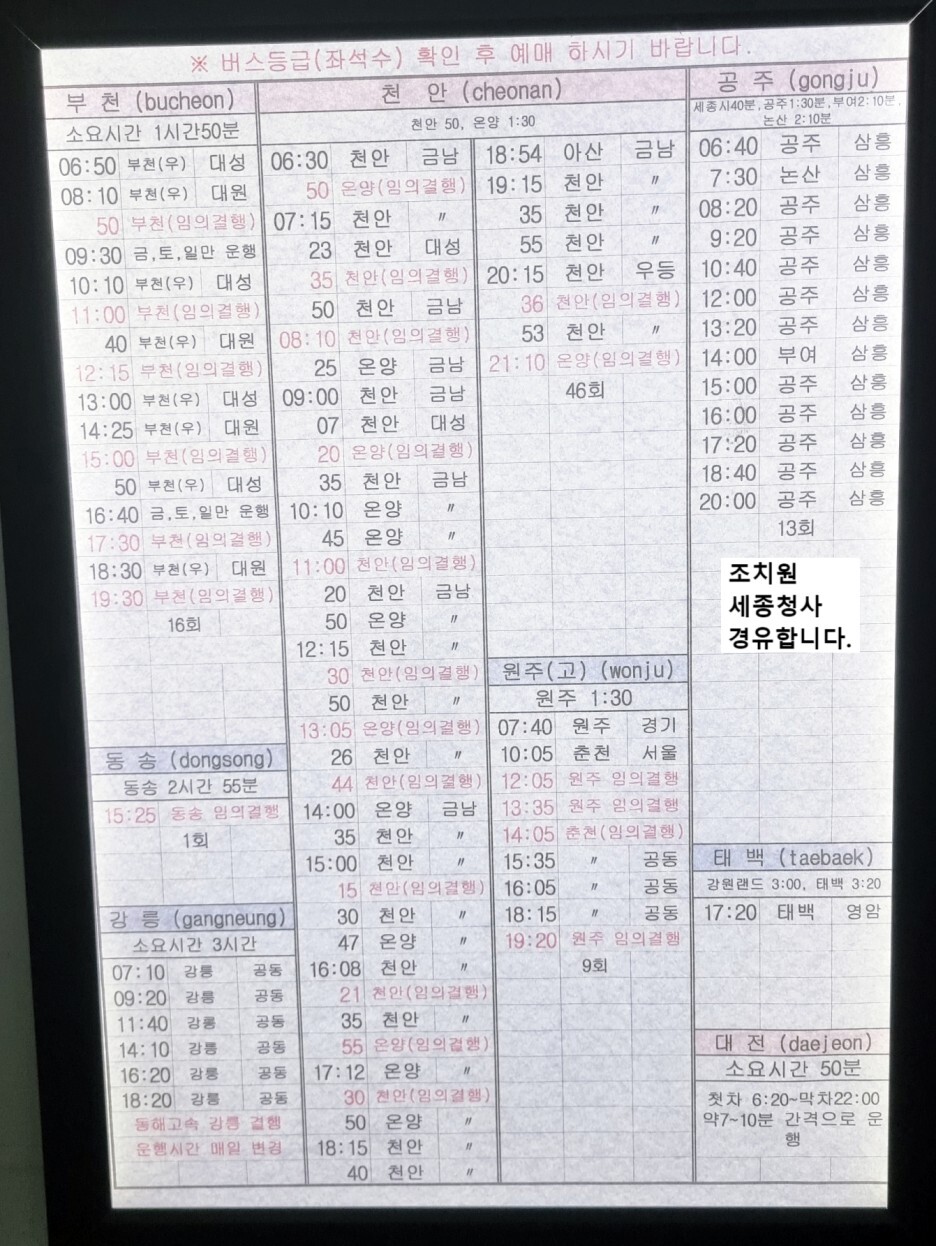 ※ 버스등급(좌석수) 확인 후 예매 하시기 바랍니다.
부 천 (bucheon)
소요시간 1시간50분
06:50 부천(우) 대성
08:10 부천(우) 대원
50 부천(임의결행)
09:30 금,토,일만 운행
10:10 부천(우) 대성
11:00 부천(임의결행)
40 부천(우) 대원
12:15 부천(임의결행)
13:00 부천(우) 대성
14:25 부천(우) 대원
15:00 부천(임의결행)
50 부천(우) 대성
16:40 금,토,일만 운행
17:30 부천(임의결행)
18:30 부천(우) 대원
19:30 부천(임의결행)
16회
동 송 (dongsong)
동송 2시간 55분
15:25 동송 임의결행
1회
강 릉 (gangneung)
소요시간 3시간
07:10 강릉 공동
09:20 강릉 공동
11:40 강릉 공동
14:10 강릉 공동
16:20 강릉 공동
18:20 강릉 공동
동해고속 강릉 결행
운행시간 매일 변경
천 안 (cheonan)
천안 50, 온양 1:30
06:30 천안 금남
50 온양(임의결행)
07:15 천안 〃
23 천안 대성
35 천안(임의결행)
50 천안 금남
08:10 천안(임의결행)
25 온양 금남
09:00 천안 금남
07 천안 대성
20 온양(임의결행)
35 천안 금남
10:10 온양 〃
45 온양 〃
11:00 천안(임의결행)
20 천안 금남
50 온양 〃
12:15 천안 〃
30 천안(임의결행)
50 천안 〃
13:05 온양(임의결행)
26 천안 〃
44 천안(임의결행)
14:00 온양 금남
35 천안 〃
15:00 천안 〃
15 천안(임의결행)
30 천안 〃
47 온양 〃
16:08 천안 〃
21 천안(임의결행)
35 천안 〃
55 온양(임의결행)
17:12 온양 〃
30 천안(임의결행)
50 온양 〃
18:15 천안 〃
40 천안 〃
18:54 아산 금남
19:15 천안 〃
35 천안 〃
55 천안 〃
20:15 천안 우등
36 천안(임의결행)
53 천안 〃
21:10 온양(임의결행)
46회
원주(고) (wonju)
원주 1:30
07:40 원주 경기
10:05 춘천 서울
12:05 원주 임의결행
13:35 원주 임의결행
14:05 춘천(임의결행)
15:35 〃 공동
16:05 〃 공동
18:15 〃 공동
19:20 원주 임의결행
9회
공 주 (gongju)
세종시40분,공주1:30분,부여2:10분,
논산 2:10분
06:40 공주 삼흥
7:30 논산 삼흥
08:20 공주 삼흥
9:20 공주 삼흥
10:40 공주 삼흥
12:00 공주 삼흥
13:20 공주 삼흥
14:00 부여 삼흥
15:00 공주 삼흥
16:00 공주 삼흥
17:20 공주 삼흥
18:40 공주 삼흥
20:00 공주 삼흥
13회
조치원
세종청사
경유합니다.
태 백 (taebaek)
강원랜드 3:00, 태백 3:20
17:20 태백 영암
대 전 (daejeon)
소요시간 50분
첫차 6:20~막차22:00
약7~10분 간격으로 운
행